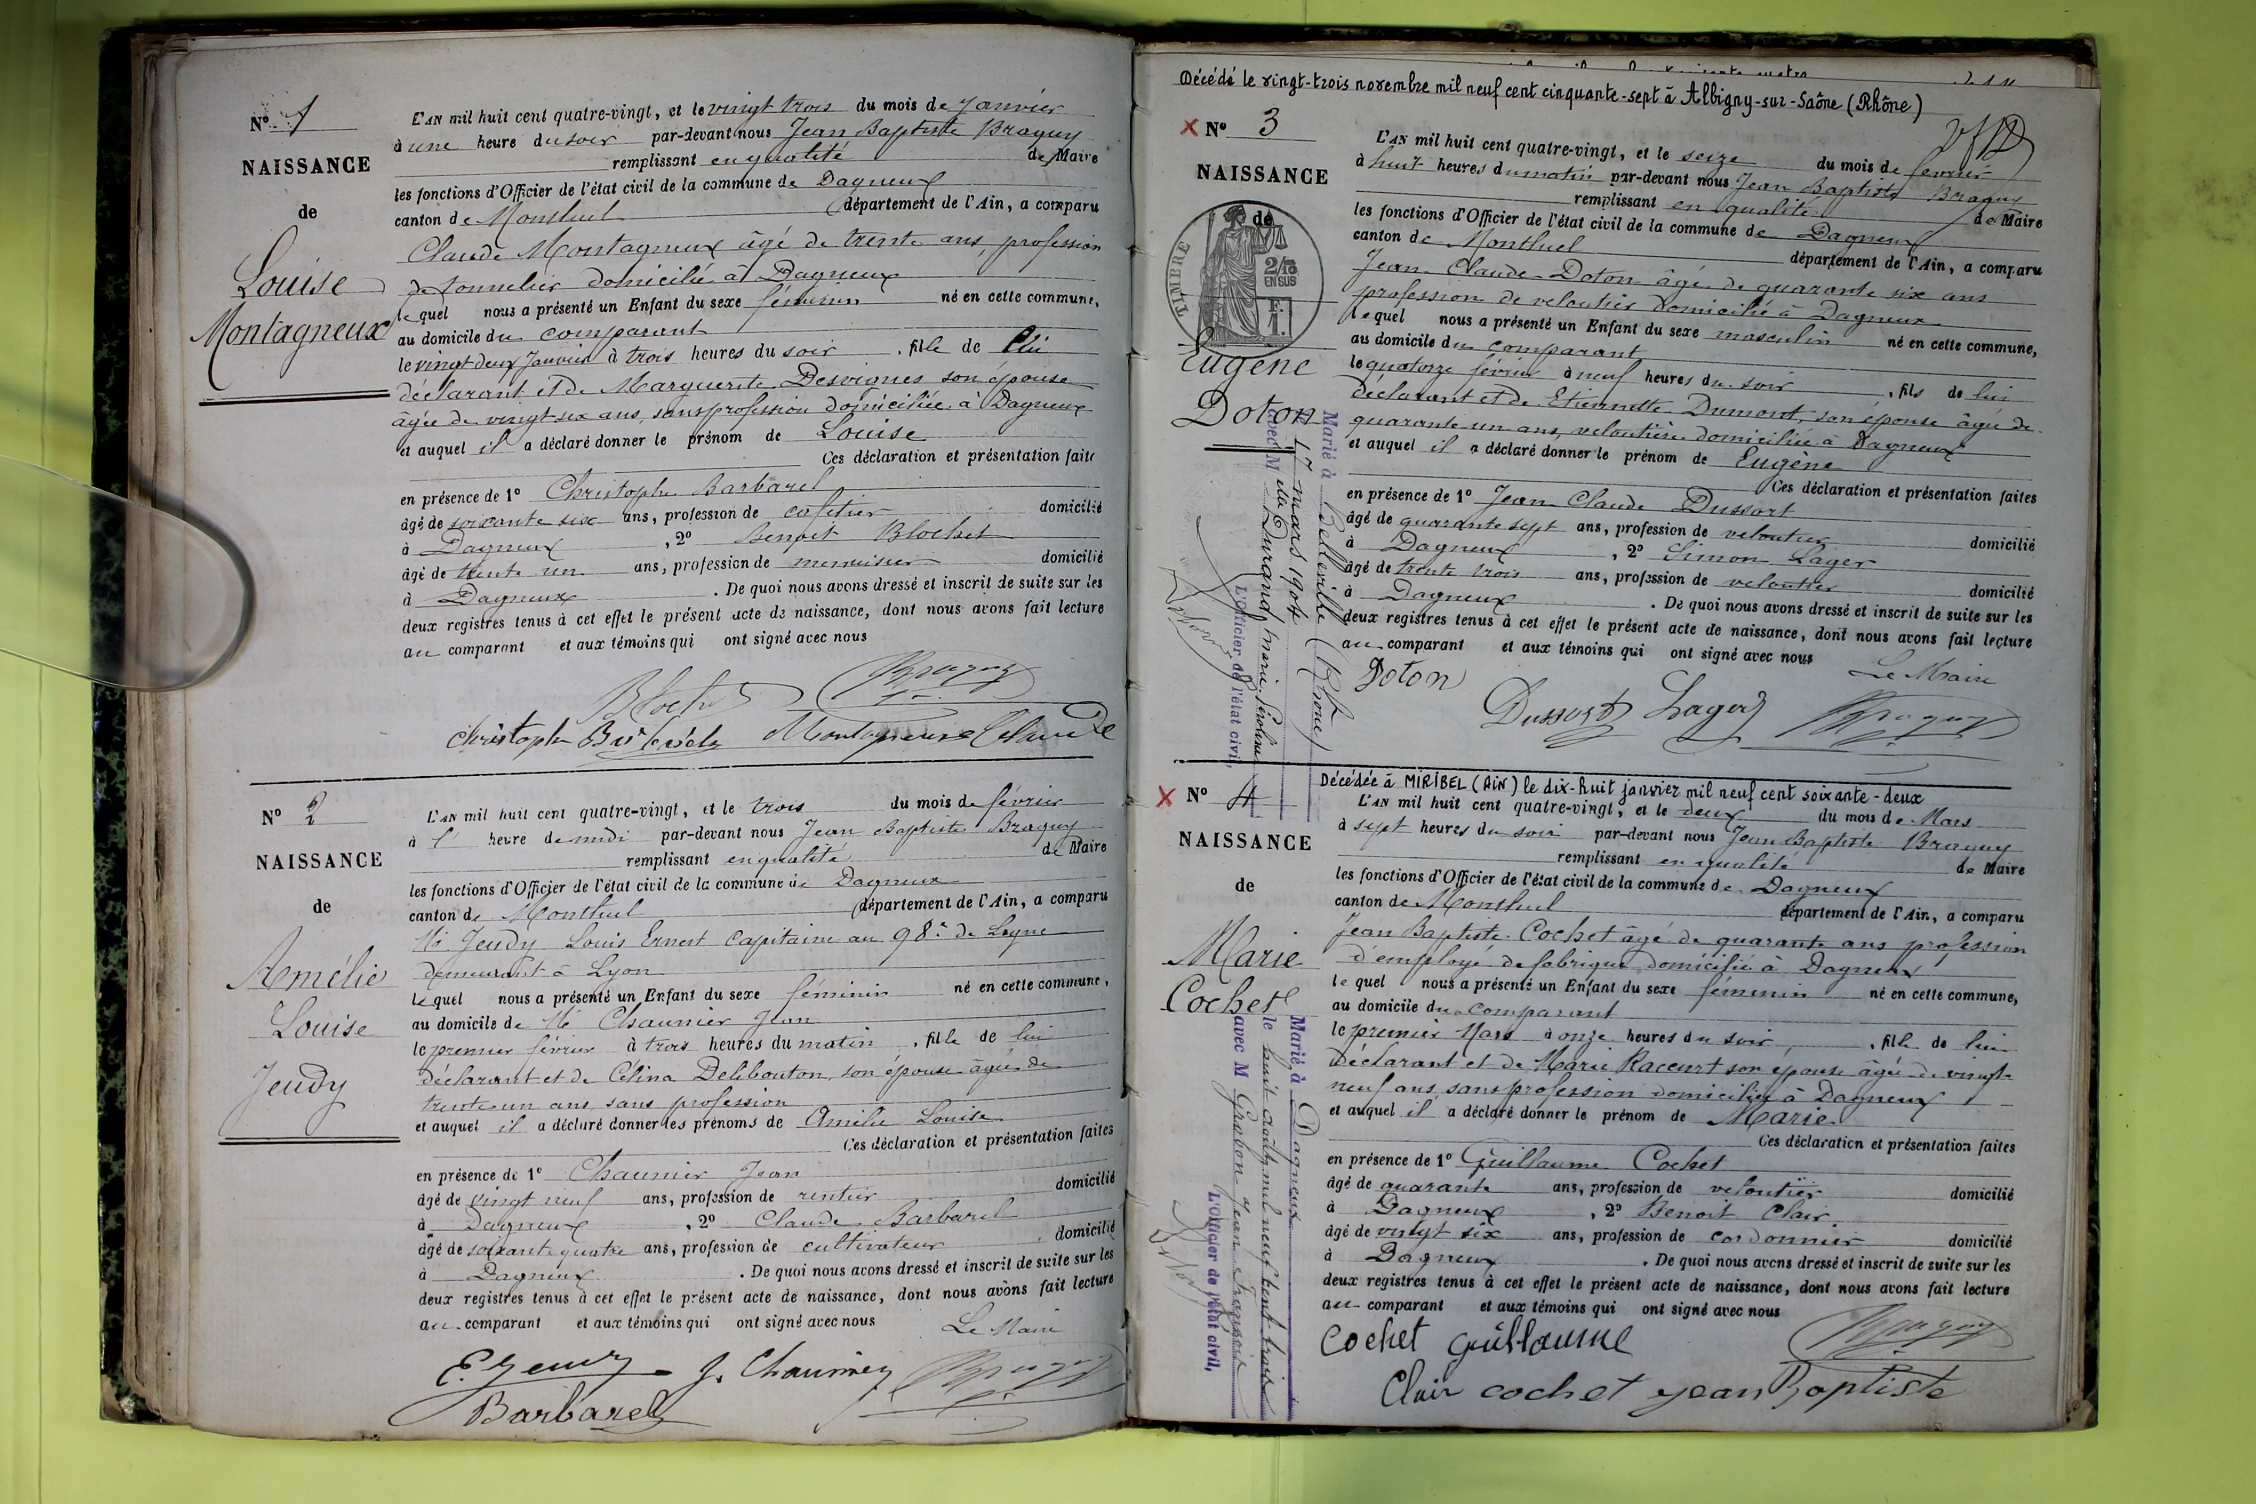 Nº 1
NAISSANCE
de
Louise
Montagneux
L'AN mil huit cent quatre-vingt, et le vingt trois du mois de Janvier
à une heure du soir par-devant nous Jean Baptiste Braguy
remplissant en qualité de Maire
les fonctions d'Officier de l'état civil de la commune de Dagneux
canton de Montluel département de l'Ain, a comparu
Claude Montagneux âgé de trente ans, profession
de tonnelier domicilié à Dagneux
lequel nous a présenté un Enfant du sexe féminin né en cette commune,
au domicile du comparant
le vingt deux Janvier à trois heures du soir, fille de lui
déclarant et de Marguerite Desvignes son épouse
âgée de vingt six ans, sans profession domiciliée à Dagneux
et auquel il a déclaré donner le prénom de Louise
Ces déclaration et présentation faites
en présence de 1º Christophe Barbarel
âgé de soixante six ans, profession de cafetier domicilié
à Dagneux, 2º Benoit Blochet
âgé de trente un ans, profession de menuisier domicilié
à Dagneux. De quoi nous avons dressé et inscrit de suite sur les
deux registres tenus à cet effet le présent acte de naissance, dont nous avons fait lecture
au comparant et aux témoins qui ont signé avec nous
Blochet Braguy
Christophe Barbarel Montagneux Claude
Nº 2
NAISSANCE
de
Amélie
Louise
Jeudy
L'AN mil huit cent quatre-vingt, et le trois du mois de février
à 1 heure de midi par-devant nous Jean Baptiste Braguy
remplissant en qualité de Maire
les fonctions d'Officier de l'état civil de la commune de Dagneux
canton de Montluel département de l'Ain, a comparu
Mr Jeudy Louis Ernest Capitaine au 98e de Ligne
demeurant à Lyon
lequel nous a présenté un Enfant du sexe féminin né en cette commune,
au domicile de Mr Chaumier Jean
le premier février à trois heures du matin, fille de lui
déclarant et de Célina Delibouton, son épouse âgée de
trente un ans sans profession
et auquel il a déclaré donner les prénoms de Amélie Louise
Ces déclaration et présentation faites
en présence de 1º Chaumier Jean
âgé de vingt neuf ans, profession de rentier domicilié
à Dagneux, 2º Claude Barbarel
âgé de soixante quatre ans, profession de cultivateur domicilié
à Dagneux. De quoi nous avons dressé et inscrit de suite sur les
deux registres tenus à cet effet le présent acte de naissance, dont nous avons fait lecture
au comparant et aux témoins qui ont signé avec nous
Le Maire
E. Jeudy J. Chaumier Braguy
Barbarel
Décédé le vingt-trois novembre mil neuf cent cinquante-sept à Albigny-sur-Saône (Rhône)
X Nº 3
NAISSANCE
de
TIMBRE
2/10
EN SUS
F.
1.
Eugène
Doton
Marié à Belleville (Rhône)
le 17 mars 1904
avec Melle Durand Marie
L'officier de l'état civil,
L'AN mil huit cent quatre-vingt, et le seize du mois de février
à huit heures du matin par-devant nous Jean Baptiste Braguy
remplissant en qualité de Maire
les fonctions d'Officier de l'état civil de la commune de Dagneux
canton de Montluel département de l'Ain, a comparu
Jean Claude Doton âgé de quarante six ans
profession de veloutier domicilié à Dagneux
lequel nous a présenté un Enfant du sexe masculin né en cette commune,
au domicile du comparant
le quatorze février à neuf heures du soir, fils de lui
déclarant et de Etiennette Dumont, son épouse âgée de
quarante un ans, veloutière domiciliée à Dagneux
et auquel il a déclaré donner le prénom de Eugène
Ces déclaration et présentation faites
en présence de 1º Jean Claude Dussort
âgé de quarante sept ans, profession de veloutier domicilié
à Dagneux, 2º Simon Lager
âgé de trente trois ans, profession de veloutier domicilié
à Dagneux. De quoi nous avons dressé et inscrit de suite sur les
deux registres tenus à cet effet le présent acte de naissance, dont nous avons fait lecture
au comparant et aux témoins qui ont signé avec nous
Le Maire
Doton Dussort Lager Braguy
Décédée à MIRIBEL (AIN) le dix-huit janvier mil neuf cent soixante-deux
X Nº 4
NAISSANCE
de
Marie
Cochet
Marié à Dagneux
le huit août mil neuf cent trois
avec M Grobon Jean François
L'officier de l'état civil,
L'AN mil huit cent quatre-vingt, et le deux du mois de Mars
à sept heures du soir par-devant nous Jean Baptiste Braguy
remplissant en qualité de Maire
les fonctions d'Officier de l'état civil de la commune de Dagneux
canton de Montluel département de l'Ain, a comparu
Jean Baptiste Cochet âgé de quarante ans profession
d'employé de fabrique domicilié à Dagneux
lequel nous a présenté un Enfant du sexe féminin né en cette commune,
au domicile du comparant
le premier Mars à onze heures du soir, fille de lui
déclarant et de Marie Raccurt son épouse âgée de vingt
neuf ans, sans profession domiciliée à Dagneux
et auquel il a déclaré donner le prénom de Marie
Ces déclaration et présentation faites
en présence de 1º Guillaume Cochet
âgé de quarante ans, profession de veloutier domicilié
à Dagneux, 2º Benoit Clair
âgé de vingt six ans, profession de cordonnier domicilié
à Dagneux. De quoi nous avons dressé et inscrit de suite sur les
deux registres tenus à cet effet le présent acte de naissance, dont nous avons fait lecture
au comparant et aux témoins qui ont signé avec nous
Cochet Guillaume Braguy
Clair cochet jean Baptiste